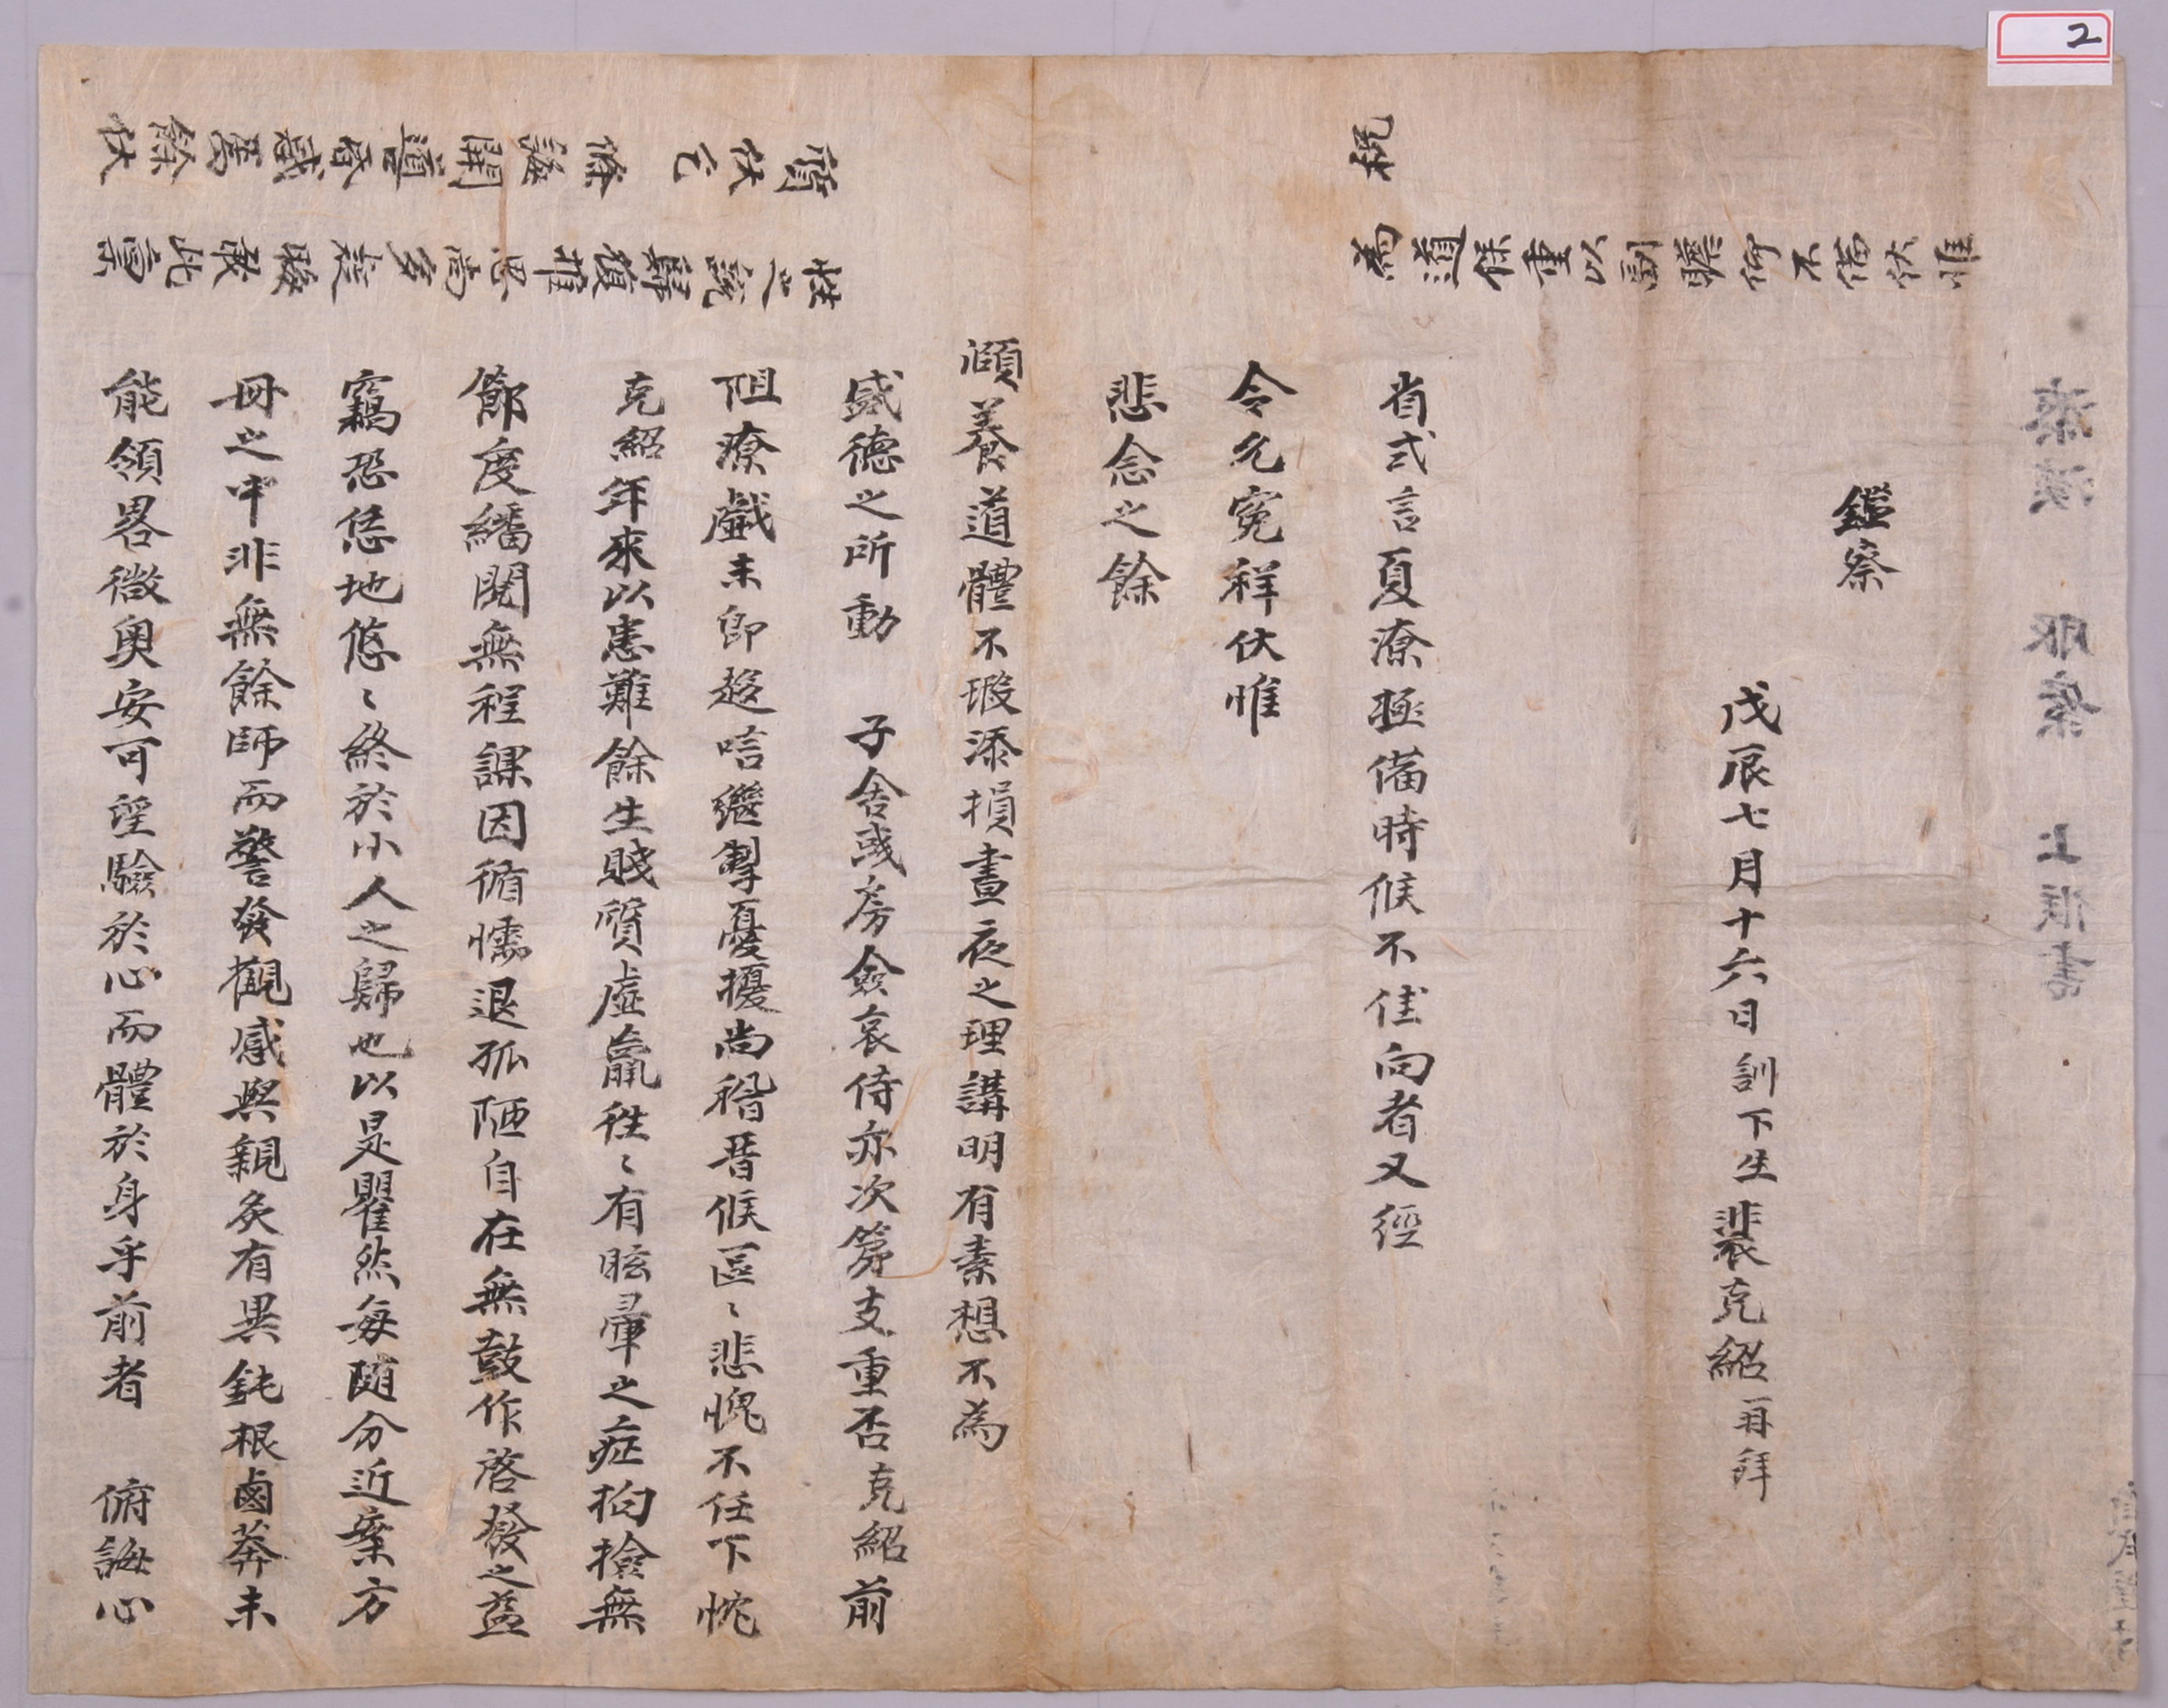 省式言夏潦極備時候不佳向者又徑
令允寃祥伏惟
悲念之餘
澒養道體不瑕添損晝夜之理講明有素想不為
盛德之所動 子舍或房僉哀侍亦次第支重否克紹前
阻潦戱未卽趍唁繼掣憂擾尚稽晉候區〻悲愧不任下忱
克紹年來以患難餘生賤質虛羸往〻有眩暈之症拘撿無
節度繙閱無程課因循懦退孤陋自在無鼓作啓發之益
竊恐恁地悠〻終於小人之歸也以是瞿然每随分近案方
冊之中非無餘師而警發觀感與親炙有異鈍根鹵莽未
能領畧微奧安可望驗於心而體於身乎前者 俯誨心
性之說歸復推思尚多疑晦敢此稟
質伏乞 條誨開導昏惑焉餘伏
祝
為道保重以副瞻仰不備伏惟
鑑察
戊辰七月十六日訓下生裴克紹再拜
2